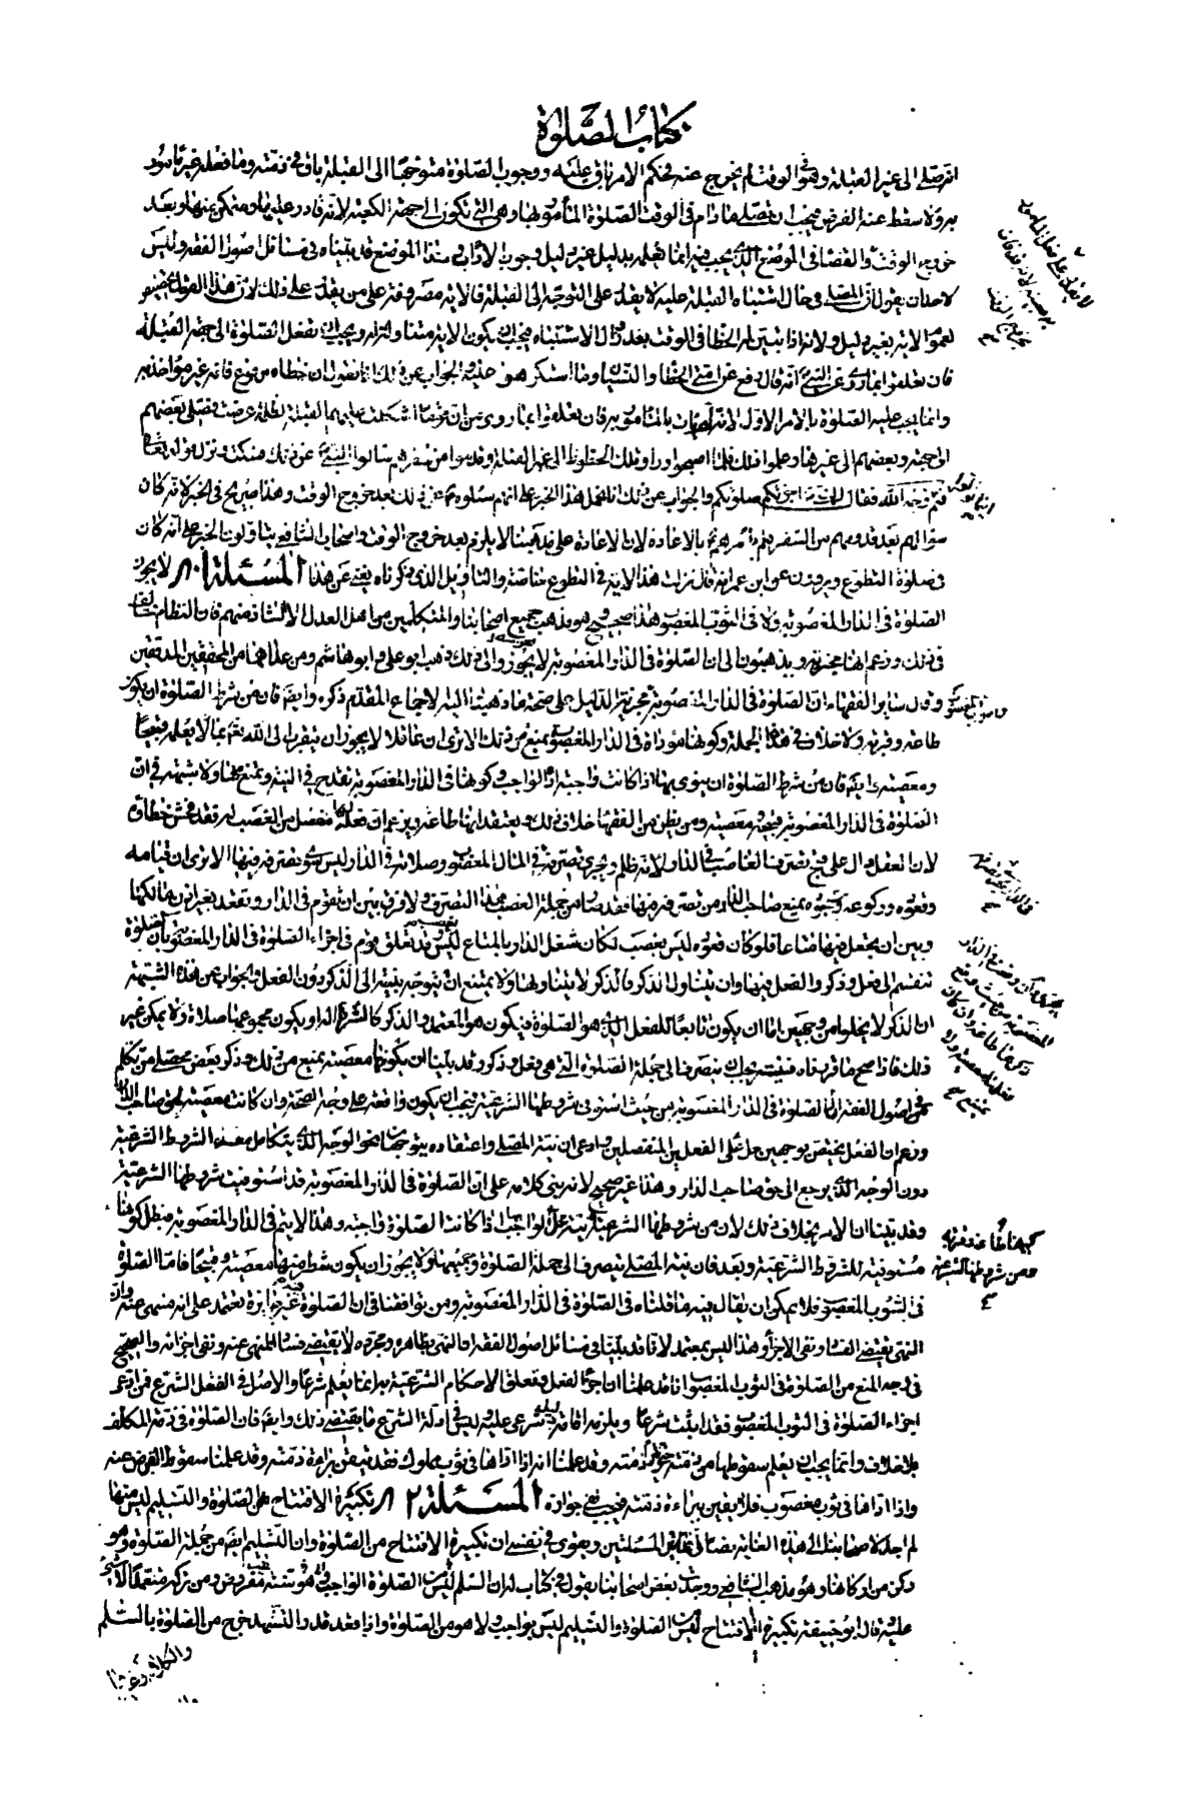 كتاب الصلوة
انه صلى الى غير القبلة وهو فى الوقت لم يخرج عنه فحكم الامر باق عليه ووجوب الصلوة متوجها الى القبلة باق فى ذمته وما فعله غير مأمور
به ولا سقط عنه الفرض فيجب ان يصلى ما دام فى الوقت الصلوة المأمور بها وهى التى تكون الى جهة الكعبة لانه قادر عليها ومتمكن منها وبعد
خروج الوقت والقضاء فى الموضع الذى يجب فيه انما يعلم بدليل غير دليل وجوب الاداء وهذا الموضع قد بيناه فى مسائل اصول الفقه وليس
لاحد ان يقول ان المصلى فى حال اشتباه القبلة عليه لا يقدر على التوجه الى القبلة فالاية مصروفة على من يقدر على ذلك لان هذا القول تخصيص
لعموم الاية بغير دليل ولانه اذا تبين له الخطأ فى الوقت بعد زوال الاشتباه فيجب ان يكون الاية متناولة له ويجب ان يفعل الصلوة الى جهة القبلة
فان تعلقوا بما روى عن النبى انه قال رفع عن امتى الخطأ والنسيان وما استكرهوا عليه والجواب عن ذلك انا نقول ان خطأه مرفوع فانه غير مؤاخذ به
وانما يجب عليه الصلوة بالامر الاول لانه لم يأت بالمأمور به فان تعلقوا بما روى من ان قوما اشكلت عليهم القبلة لظلمة عرضت فصلى بعضهم
الى جهة وبعضهم الى غيرها وعلموا ذلك فلما اصبحوا وراوا تلك الخطوط الى غير القبلة وقدموا من سفرهم سألوا النبى عن ذلك فسكت ونزل قوله تعالى
فثم وجه الله فقال النبى اجزأتكم صلوتكم والجواب عن ذلك انا نحمل هذا الخبر على انهم سئلوه عن ذلك بعد خروج الوقت وهذا صريح فى الخبر لانه كان
سؤالهم بعد قدومهم من السفر فلم يأمرهم بالاعادة لان الاعادة على مذهبنا لا يلزم بعد خروج الوقت واصحاب الشافعى يتأولون الخبر على انه كان
فى صلوة التطوع ويروون عن ابن عمر انه قال نزلت هذا الاية فى التطوع خاصة والتاويل الذى ذكرناه يغنى عن هذا المسئلة ٨١ لا يجوز
الصلوة فى الدار المغصوبة ولا فى الثوب المغصوب هذا صحيح وهو مذهب جميع اصحابنا والمتكلمين من اهل العدل الا الشاذ منهم فان النظام خالف
فى ذلك وزعم انها مجزية ويذهبون الى ان الصلوة فى الدار المغصوبة لا يجوز والى ذلك ذهب ابو على وابو هاشم ومن عداهما من المحققين المدققين
وقال سائر الفقهاء ان الصلوة فى الدار المغصوبة مجزية الدليل على صحة ما ذهبنا اليه الاجماع المقدم ذكره وايضا فان من شرط الصلوة ان يكون
طاعة وقربة ولا خلاف فى هذه الجملة وكونها مؤداة فى الدار المغصوبة يمنع من ذلك الا ترى ان عاقلا لا يجوز ان يتقرب الى الله تعالى بما لا يعلمه قبيحا
ومعصية وايضا فان من شرط الصلوة ان ينوى بها اذا كانت واجبة اداء الواجب وكونها فى الدار المغصوبة يقدح فى النية ويمنع منها ولا يشتبه فى ان
الصلوة فى الدار المغصوبة قبيحة ومعصية ومن يظن من الفقهاء خلاف ذلك ويعتقد انها طاعة ويزعم ان فعله لها منفصل من الغصب له فقد فحش خطأه
لان العقل دال على قبح تصرف الغاصب فى الدار لانه ظلم ويجرى تصرفه فى المال المغصوب وصلاته فى الدار ليس سوى تصرفه فيها الا ترى ان قيامه
وقعوده وركوعه وسجوده يمنع صاحب الدار من تصرفه فيها فقد صار من جملة الغصب هذا التصرف ولا فرق بين ان يقوم فى الدار ويقعد بغير اذن مالكها
وبين ان يجعل فيها متاعا فلو كان قعوده ليس بغصب لكان شغل الدار بالمتاع ليس بغصب وقد تعلق قوم فى اجزاء الصلوة فى الدار المغصوبة بان الصلوة
تنقسم الى فعل وذكر والفعل فيها وان يتناول الذكر فالذكر لا يتناولها ولا يمتنع ان يتوجه بنيته الى الذكر دون الفعل والجواب عن هذه الشبهة
ان الذكر لا يخلوا من وجهين اما ان يكون تابعا للفعل الذى هو الصلوة فيكون هو المعتمد والذكر كالشرط له او يكون مجموعهما صلاة ولا يمكن غير
ذلك فاذا صح ما قررناه فنيته يجب ان ينصرف الى جملة الصلوة التى هى فعل وذكر وقد بينا ان يكونهما معصية يمنع من ذلك وذكر بعض محصلى من تكلم
فى اصول الفقه ان الصلوة فى الدار المغصوبة من حيث استوفى شروطها الشرعية يجب ان يكون واقعة على وجه الصحة وان كانت معصية لحق صاحب الدار
وزعم ان الفعل يختص بوجهين حل محل الفعلين المنفصلين وادعى ان نية المصلى واعتقاده يتوجهان نحو الوجه الذى يتكامل معه الشروط الشرعية
دون الوجه الذى يرجع الى حق صاحب الدار وهذا غير صحيح لانه بنى كلامه على ان الصلوة فى الدار المغصوبة قد استوفيت شروطها الشرعية
وقد بينا ان الامر بخلاف ذلك لان من شروطها الشرعية نية اداء الواجب اذا كانت الصلوة واجبة وهذا لا يتم فى الدار المغصوبة فبطل كونها
مستوفية للشروط الشرعية وبعد فان نية المصلى ينصرف الى جملة الصلوة وجميعها ولا يجوز ان يكون شطر منها معصية وقبيحا فاما الصلوة
فى الثوب المغصوب فلا يمكن ان يقال فيه ما قلناه فى الصلوة فى الدار المغصوبة ومن يوافقنا فى ان الصلوة فيه غير مجزية يعتمد على انه منهى عنه وان
النهى يقتضى الفساد ونفى الاجزاء وهذا ليس بمعتمد لانا قد بينا فى مسائل اصول الفقه ان النهى بظاهره ومجرده لا يقتضى فساد المنهى عنه ونفى اجزائه والصحيح
فى وجه المنع من الصلوة فى الثوب المغصوب انا قد علمنا ان اجزاء الفعل وتعلق الاحكام الشرعية به انما يعلم شرعا والاصل فى الفعل الشرع فمن ادعى
اجزاء الصلوة فى الثوب المغصوب فقد اثبت شرعا ويلزمه اقامة دليل شرعى عليه وليس فى ادلة الشرع ما يقتضى ذلك وايضا فان الصلوة فى ذمة المكلف
بلا خلاف وانما يجب ان يعلم سقوطها من ذمته وقد علمنا انه اذا اداها فى ثوب مملوك فقد تيقن براءة ذمته وقد علمنا سقوط الفرض عنه
واذا اداها فى ثوب مغصوب فلا يقين ببراءة ذمته فيجب نفى جوازه المسئلة ٨٢ تكبيرة الافتتاح من الصلوة والتسليم ليس منها
لم اجد لاصحابنا الى هذه الغاية نصا فى هاتين المسئلتين ويقوى فى نفسى ان تكبيرة الافتتاح من الصلوة وان التسليم ايضا من جملة الصلوة وهو
ركن من اركانها وهو مذهب الشافعى ووجدت بعض اصحابنا يقول فى كتاب له ان السلم ليس من الصلوة الواجب فيها هو سنة غير مفروض ومن تركه متعمدا لا شىء
عليه وقال ابو حنيفة تكبيرة الافتتاح ليس من الصلوة والتسليم ليس بواجب ولا هو من الصلوة واذا قعد قدر التشهد خرج من الصلوة بالسلم
والكلام وغيرهما